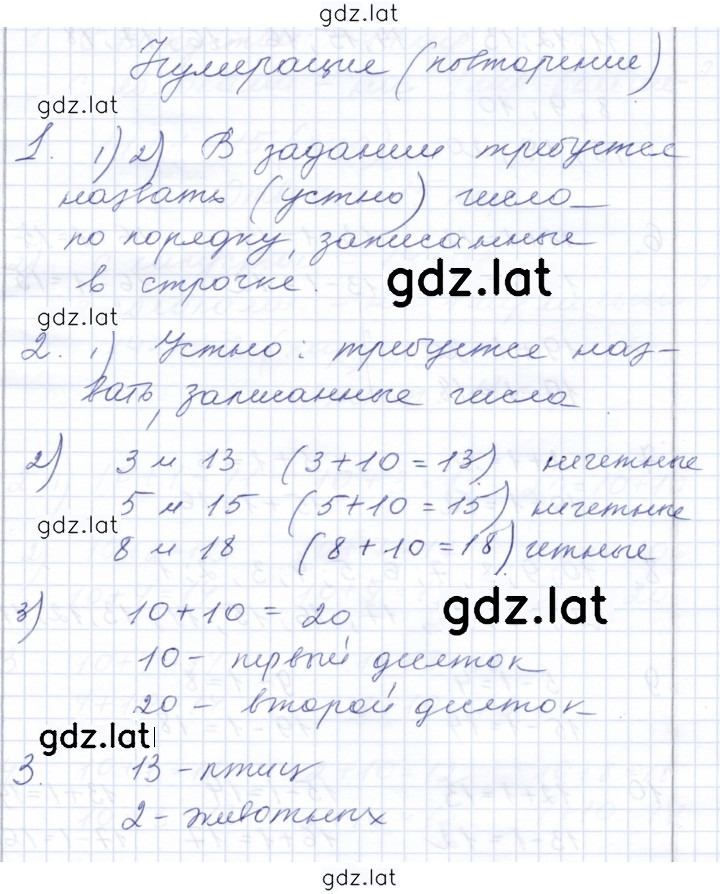 gdz.lat
Нумерация (повторение)
gdz.lat
1. 1) 2) В задании требуется
назвать (устно) число
по порядку, записанные
в строчке.
gdz.lat
gdz.lat
2. 1) Устно: требуется наз-
вать, записанные числа
2) 3 и 13 (3+10=13) нечетные
5 и 15 (5+10=15) нечетные
gdz.lat
8 и 18 (8+10=18) четные
gdz.lat
3) 10+10=20
10 - первый десяток
20 - второй десяток
gdz.lat
3. 13 - птиц
2 - животных
gdz.lat